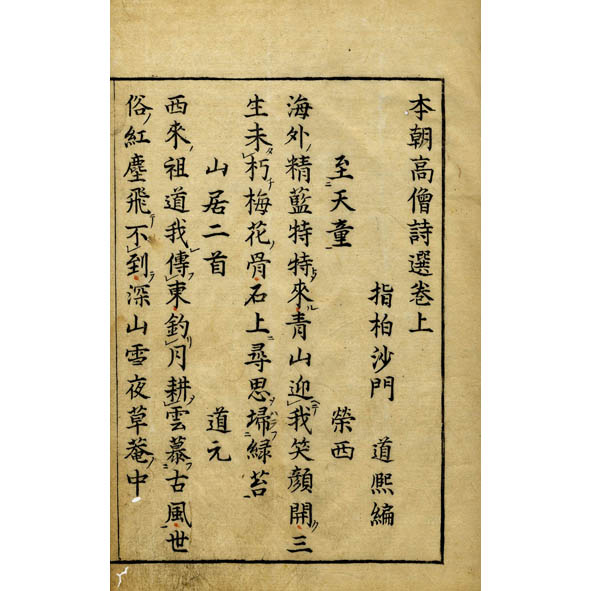 本朝高僧詩選卷上
指柏沙門 道熈編
至天童 榮西
海外精藍特特來青山迎我笑顔開三
生未朽梅花骨石上尋思埽緑苔
山居二首 道元
西來祖道我傳東釣月耕雲慕古風世
俗紅塵飛不到深山雪夜草菴中